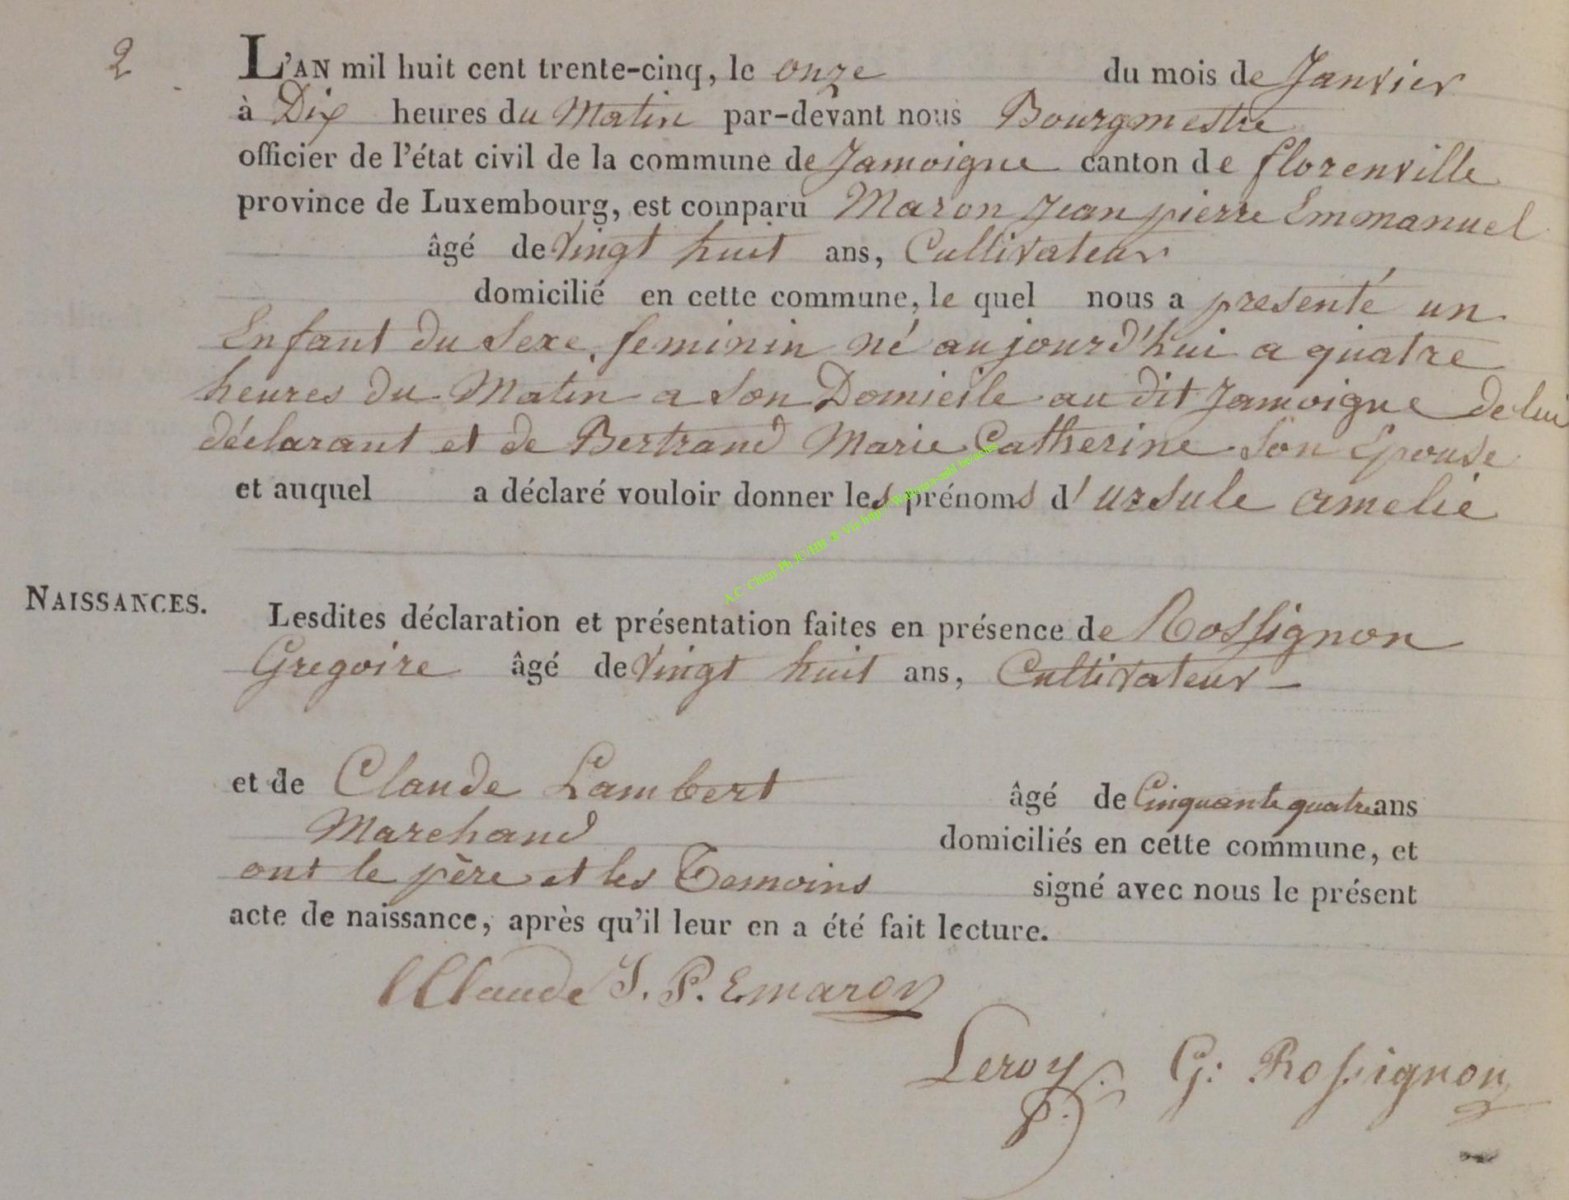 2
L'AN mil huit cent trente-cinq, le onze du mois de Janvier
à Dix heures du Matin par-devant nous Bourgmestre
officier de l'état civil de la commune de Jamoigne canton de florenville
province de Luxembourg, est comparu Maron Jean pierre Emmanuel
âgé de Vingt huit ans, Cultivateur
domicilié en cette commune, le quel nous a presenté un
Enfant du Sexe, feminin né aujourd'hui a quatre
heures du Matin a Son Domicile au dit Jamoigne de lui
déclarant et de Bertrand Marie Catherine Son Epouse
et auquel a déclaré vouloir donner les prénoms d'ursule amelie
NAISSANCES.
Lesdites déclaration et présentation faites en présence de Rossignon
Gregoire âgé de Vingt huit ans, Cultivateur
et de Claude Lambert âgé de Cinquante quatre ans
Marchand domiciliés en cette commune, et
ont le père et les Temoins signé avec nous le présent
acte de naissance, après qu'il leur en a été fait lecture.
Claude J. P. E maron
Leroy G: Rossignon